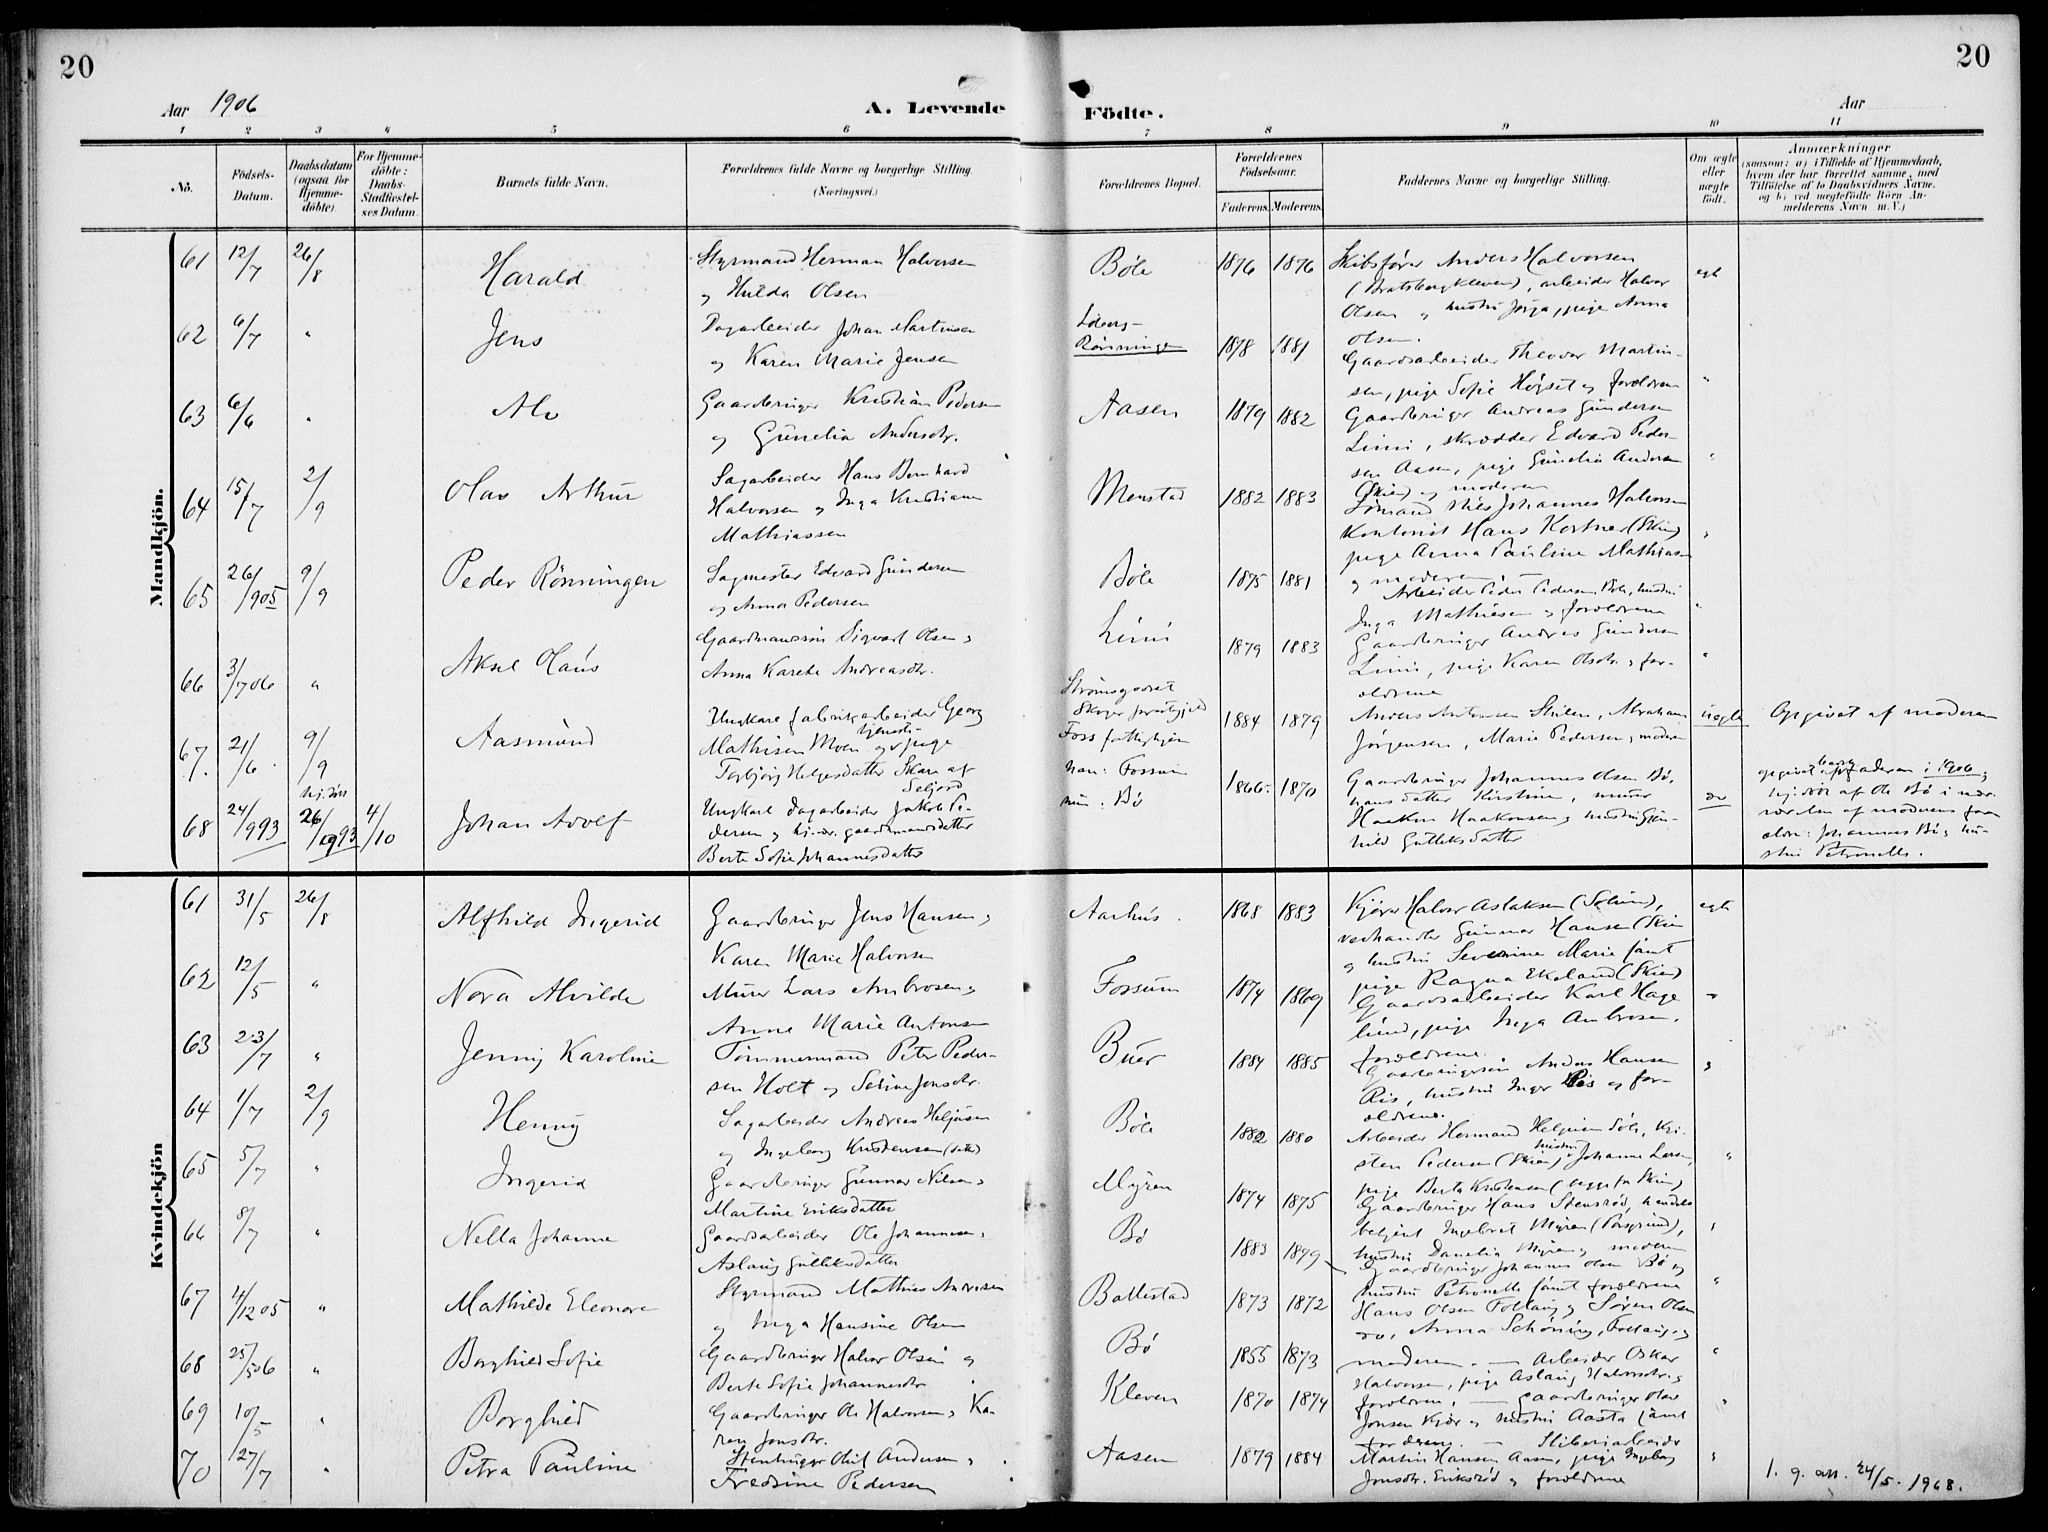 20
20
Aar 1906
A. Levende
Födte.
Aar
1 2 3 4 5 6 7 8 9 10 11
No.
Födsels-
Datum.
Daabsdatum
(ogsaa for
Hjemme-
döbte)
For Hjemme-
döbte:
Daabs-
Stadfæstel-
ses Datum.
Barnets fulde Navn.
Forældrenes fulde Navne og borgerlige Stilling
(Næringsvei.)
Forældrenes Bopæl.
Forældrenes
Födselsaar.
Faderens. Moderens.
Faddernes Navne og borgerlige Stilling.
Om ægte
eller
uægte
födt.
Anmærkninger
(saasom: a) i Tilfælde af Hjemmedaab,
hvem der har forrettet samme, med
Tilföielse af to Daabsvidners Navne.
og b) ved uægtefödte Börn An-
melderens Navn m. V.)
Mandkjön.
61 12/7 26/8 Harald
Styrmand Herman Halvorsen
og Hulda Olsen
Böle 1876 1876
Skibsförer Anders Halvorsen
(Bratsbergkleven), arbeider Halvor
Olsen og hustru, pige Anna
Olsen.
egt
62 6/7 " Jens
Dagarbeider Johan Martinsen
og Karen Marie Jensen
Rönningen 1878 1881
Gaardsarbeider Theodor Martin-
sen, pige Sofie Högset og forældrene
"
63 6/6 " Alv
Gaardbruger Kristian Pedersen
og Gunelia Andersdtr.
Aasen 1879 1882
Gaardbruger Andreas Gundersen
Limi, skrædder Edvard Peder-
sen Aasen, pige Gunelia Andersen
(Skien) og moderen
"
64 15/7 2/9 Olav Arthur
Sagarbeider Hans Bernhard
Halvorsen og Inga Kristiane
Mathiassen
Menstad 1882 1883
Johannes Halvorsen
Kontorist Hans Kortner (Skien)
pige Anna Pauline Mathiasen
og moderen. —
"
65 26/905 9/9 Peder Rönningen
Sagmester Edvard Gundersen
og Anna Pedersen
Böle 1875 1881
Arbeider Peder Pedersen Böle, hustru
Inga Mathiesen og forældrene
"
66 3/706 " Aksel Olaus
Gaardmandssön Sigvart Olsen og
Anna Karete Andreasdtr.
Limi 1879 1883
Gaardbruger Andreas Gundersen
Limi, pige Karen Olsdtr. og for-
ældrene
"
67 21/6 9/9 Aasmund
Ungkarl fabrikarbeider Georg
Mathisen Moen og tjeneste-
pige
Torbjörg Helgesdatter Skare af
Seljord
Strömsgodset
Skoger præstegjeld
1884 1879
Abraham
Jörgensen, Marie Pedersen og moderen
uægte
Opgivet af moderen
68 24/993 hj. döbt 26/993 4/10 Johan Adolf
Ungkarl dagarbeider Jakob Pe-
dersen og gaardmandsdatter
Berte Sofie Johannesdatter
han: Fossum
hun: Bö
1866 1870
Gaardbruger Johannes Olsen Bö,
hans datter Kirstine, murer
Haaken Haakensen og hustru Gun-
hild Gulleksdatter
do
opgivet af faderen i 1906,
hj. döbt af Ole Bö i nær-
værelse af moderens for-
ældre: Johannes Bö og hu-
stru Petronelle.
Kvindekjön
61 31/5 26/8 Alfhild Ingerid
Gaardbruger Jens Hansen og
Karen Marie Halvorsen
Aarhus. 1868 1883
Kjører Halvor Aslaksen (Solum),
verhandler Gunnar Hansen (Skien)
og hustru Severine Marie samt
pige Ragna Ekeland (Skien)
egte
62 12/5 " Nora Alvilde
Murer Lars Ambrosen og
Anne Marie Antonsen
Fossum 1874 1869
Gaardsarbeider Karl Hage
lund, pige Inga Ambrosen.
forældrene.
"
63 23/7 " Jenny Karoline
Tömmermand Peter Peder-
sen Holt og Seline Jensdtr.
Buer 1884 1885
Anders Hansen
Ris, hustru Inger Ris og for-
ældrene.
"
64 1/7 2/9 Henny
Sagarbeider Andreas Heljesen
og Ingeborg Kristensen
Böle 1882 1880
Arbeider Hermand Heljesen Böle, Kri-
sten Pedersen (Skien), hustru Johanne Larsen,
pige Berta Kristensen
"
65 5/7 " Ingerid
Gaardbruger Gunnar Nilsen og
Martine Eriksdatter
Myren 1874 1875
Gaardbruger Hans Stensrød, handels-
betjent Ingebret Myren (Porsgrund),
hustru Danelia Myren og moderen
"
66 8/7 " Nella Johanne
Gaardsarbeider Ole Johannesen og
Aslaug Gulleksdatter
Bö 1883 1879
Gaardbruger Johannes Olsen Bö og
hustru Petronelle samt forældrene
"
67 4/1205 " Mathilde Eleonora
Styrmand Mathias Andersen
og Inga Hansine Olsen
Ballestad 1873 1872
Hans Olsen Follaug og Sören Olsen
do, Anna Schöning, Follaug og
moderen. —
68 25/506 " Borghild Sofie
Gaardbruger Halvor Olsen og
Berte Sofie Johannesdtr.
Bö 1855 1873
Arbeider Oskar
Halvorsen, pige Aslaug Halvorsdtr. og
forældrene. —
"
69 10/5 " Borghild
Gaardbruger Ole Halvorsen og Ka-
ren Jensdtr.
Kleven 1870 1874
Gaardbruger Olav
Jonsen Kjær og hustru Aasta samt
forældrene. —
"
70 27/7 " Petra Pauline
Stenhugger Olaf Andersen og
Fredrine Pedersen
Aasen 1879 1884
Sliberiarbeider
Martin Hansen Aasen, pige Ingeborg
Jensdtr. Eriksrød og forældrene
"
1. g. att. 24/5. 1968.